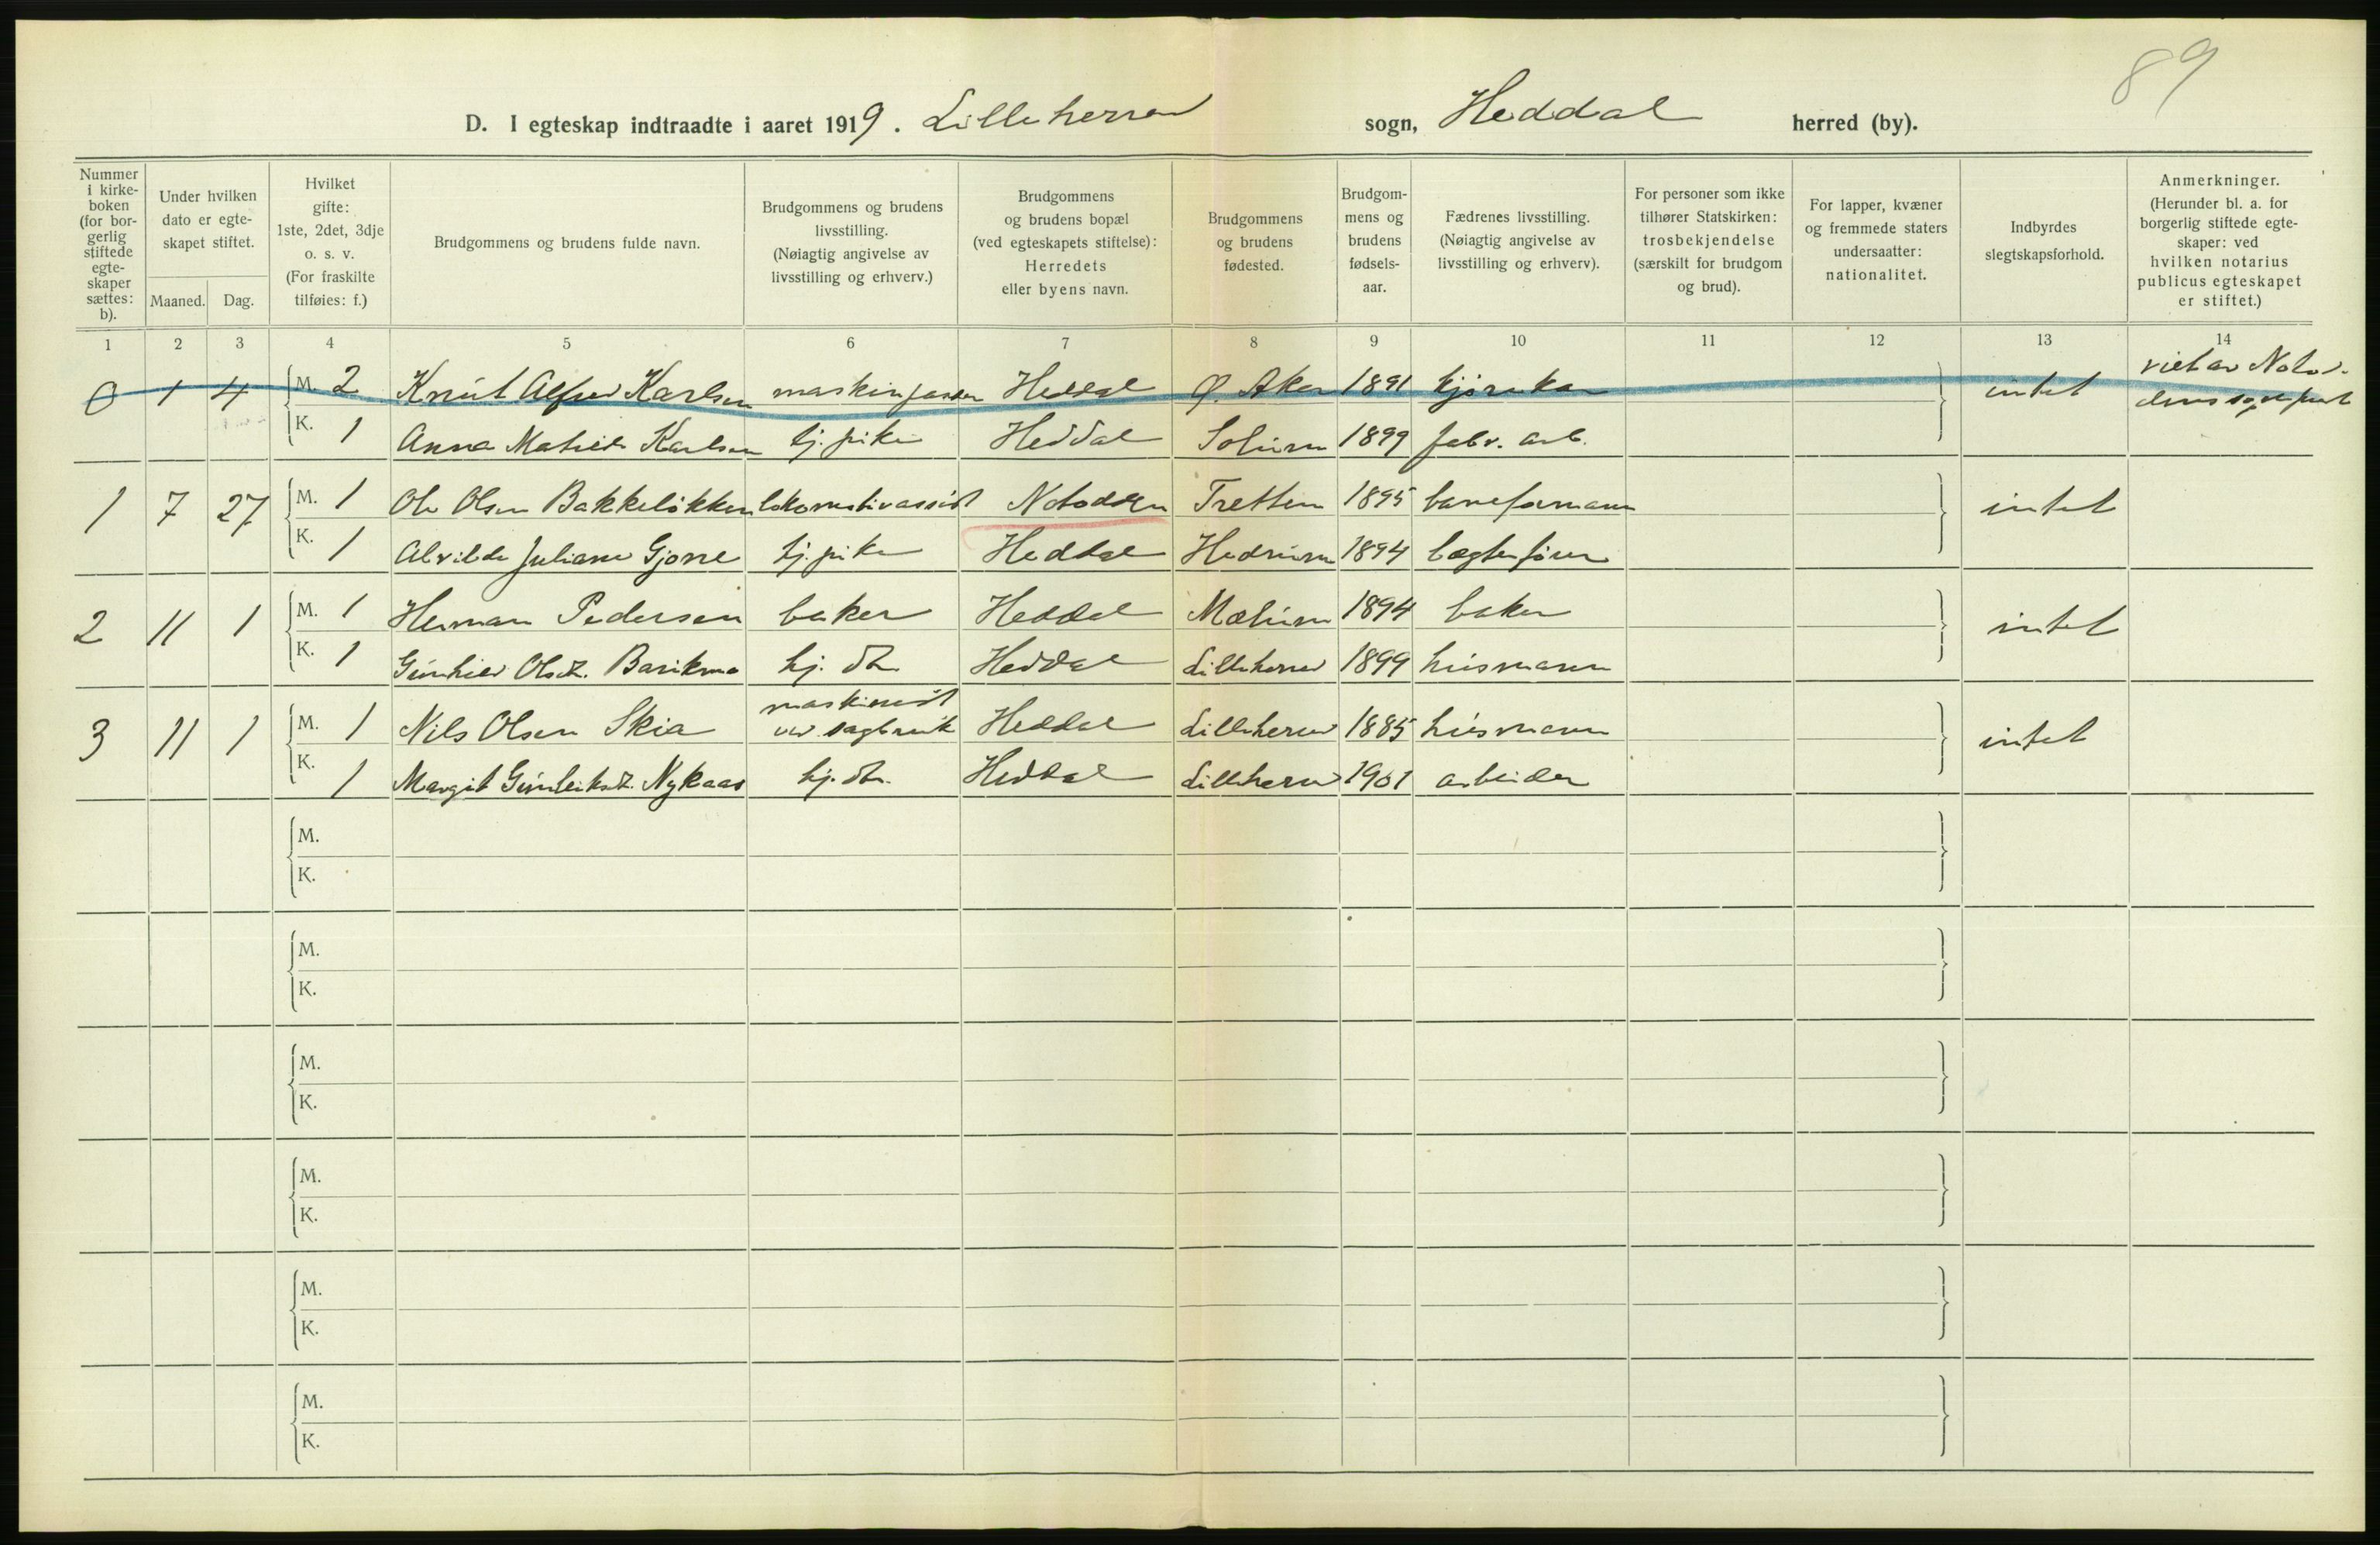 89
D. I egteskap indtraadte i aaret 1919. Lilleherred sogn, Heddal herred (by).
Nummer i kirkeboken (for borgerlig stiftede egteskaper sættes: b).
Under hvilken dato er egteskapet stiftet.
Maaned. Dag.
Hvilket gifte: 1ste, 2det, 3dje o. s. v. (For fraskilte tilføies: f.)
Brudgommens og brudens fulde navn.
Brudgommens og brudens livsstilling. (Nøiagtig angivelse av livsstilling og erhverv.)
Brudgommens og brudens bopæl (ved egteskapets stiftelse): Herredets eller byens navn.
Brudgommens og brudens fødested.
Brudgommens og brudens fødselsaar.
Fædrenes livsstilling. (Nøiagtig angivelse av livsstilling og erhverv).
For personer som ikke tilhører Statskirken: trosbekjendelse (særskilt for brudgom og brud).
For lapper, kvæner og fremmede staters undersaatter: nationalitet.
Indbyrdes slegtskapsforhold.
Anmerkninger. (Herunder bl. a. for borgerlig stiftede egteskaper: ved hvilken notarius publicus egteskapet er stiftet.)
1 2 3 4 5 6 7 8 9 10 11 12 13 14
0 1 4 M. 2 Knut Alfred Karlsen maskinpasser Heddal Ø. Aker 1891 kjørekar intet viet av Notoddens sogneprest
K. 1 Anna Mathilde Karlsen tj. pike Heddal Solum 1899 fabr. arb.
1 7 27 M. 1 Ole Olsen Bakkeløkken lokomotivassist Notodden Tretten 1895 baneformann intet
K. 1 Alvilde Juliane Gjone tj. pike Heddal Hedrum 1894 lægterfører
2 11 1 M. 1 Herman Pedersen baker Heddal Mælum 1894 baker intet
K. 1 Gunhild Olsdt. Barikmo hj. dtr. Heddal Lilleherred 1899 husmann
3 11 1 M. 1 Nils Olsen Skia maskinist ved sagbruk Heddal Lilleherred 1885 husmann intet
K. 1 Margit Gunleiksdt. Nykaas hj. dtr. Heddal Lilleherred 1901 arbeider
M.
K.
M.
K.
M.
K.
M.
K.
M.
K.
M.
K.